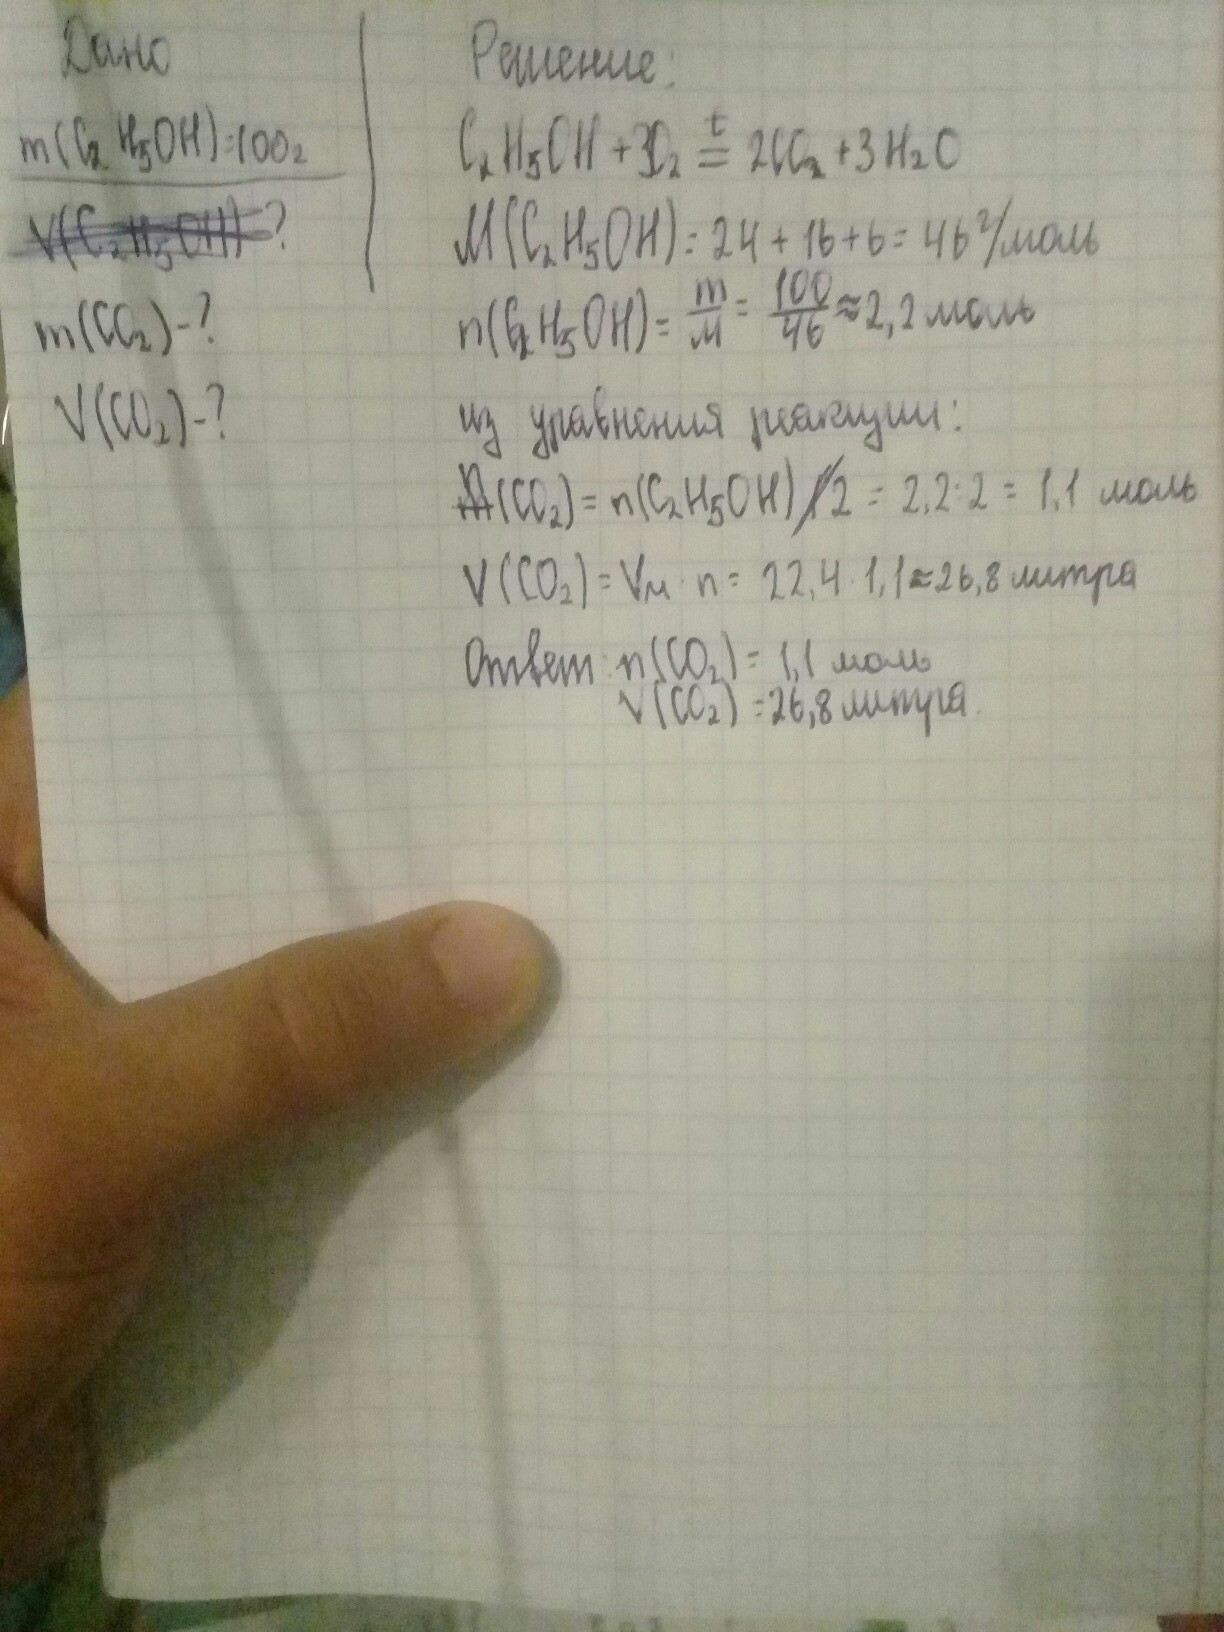 Дано
m(C₂H₅OH)=100г
V(C₂H₅OH)-?
m(CO₂)-?
V(CO₂)-?
Решение:
C₂H₅OH + 3O₂ t= 2CO₂ + 3H₂O
M(C₂H₅OH) = 24 + 16 + 6 = 46 г/моль
n(C₂H₅OH) = m/M = 100/46 ≈ 2,2 моль
из уравнения реакции:
n(CO₂) = n(C₂H₅OH) /2 = 2,2:2 = 1,1 моль
V(CO₂) = Vм · n = 22,4 · 1,1 ≈ 26,8 литра
Ответ: n(CO₂) = 1,1 моль
V(CO₂) = 26,8 литра.